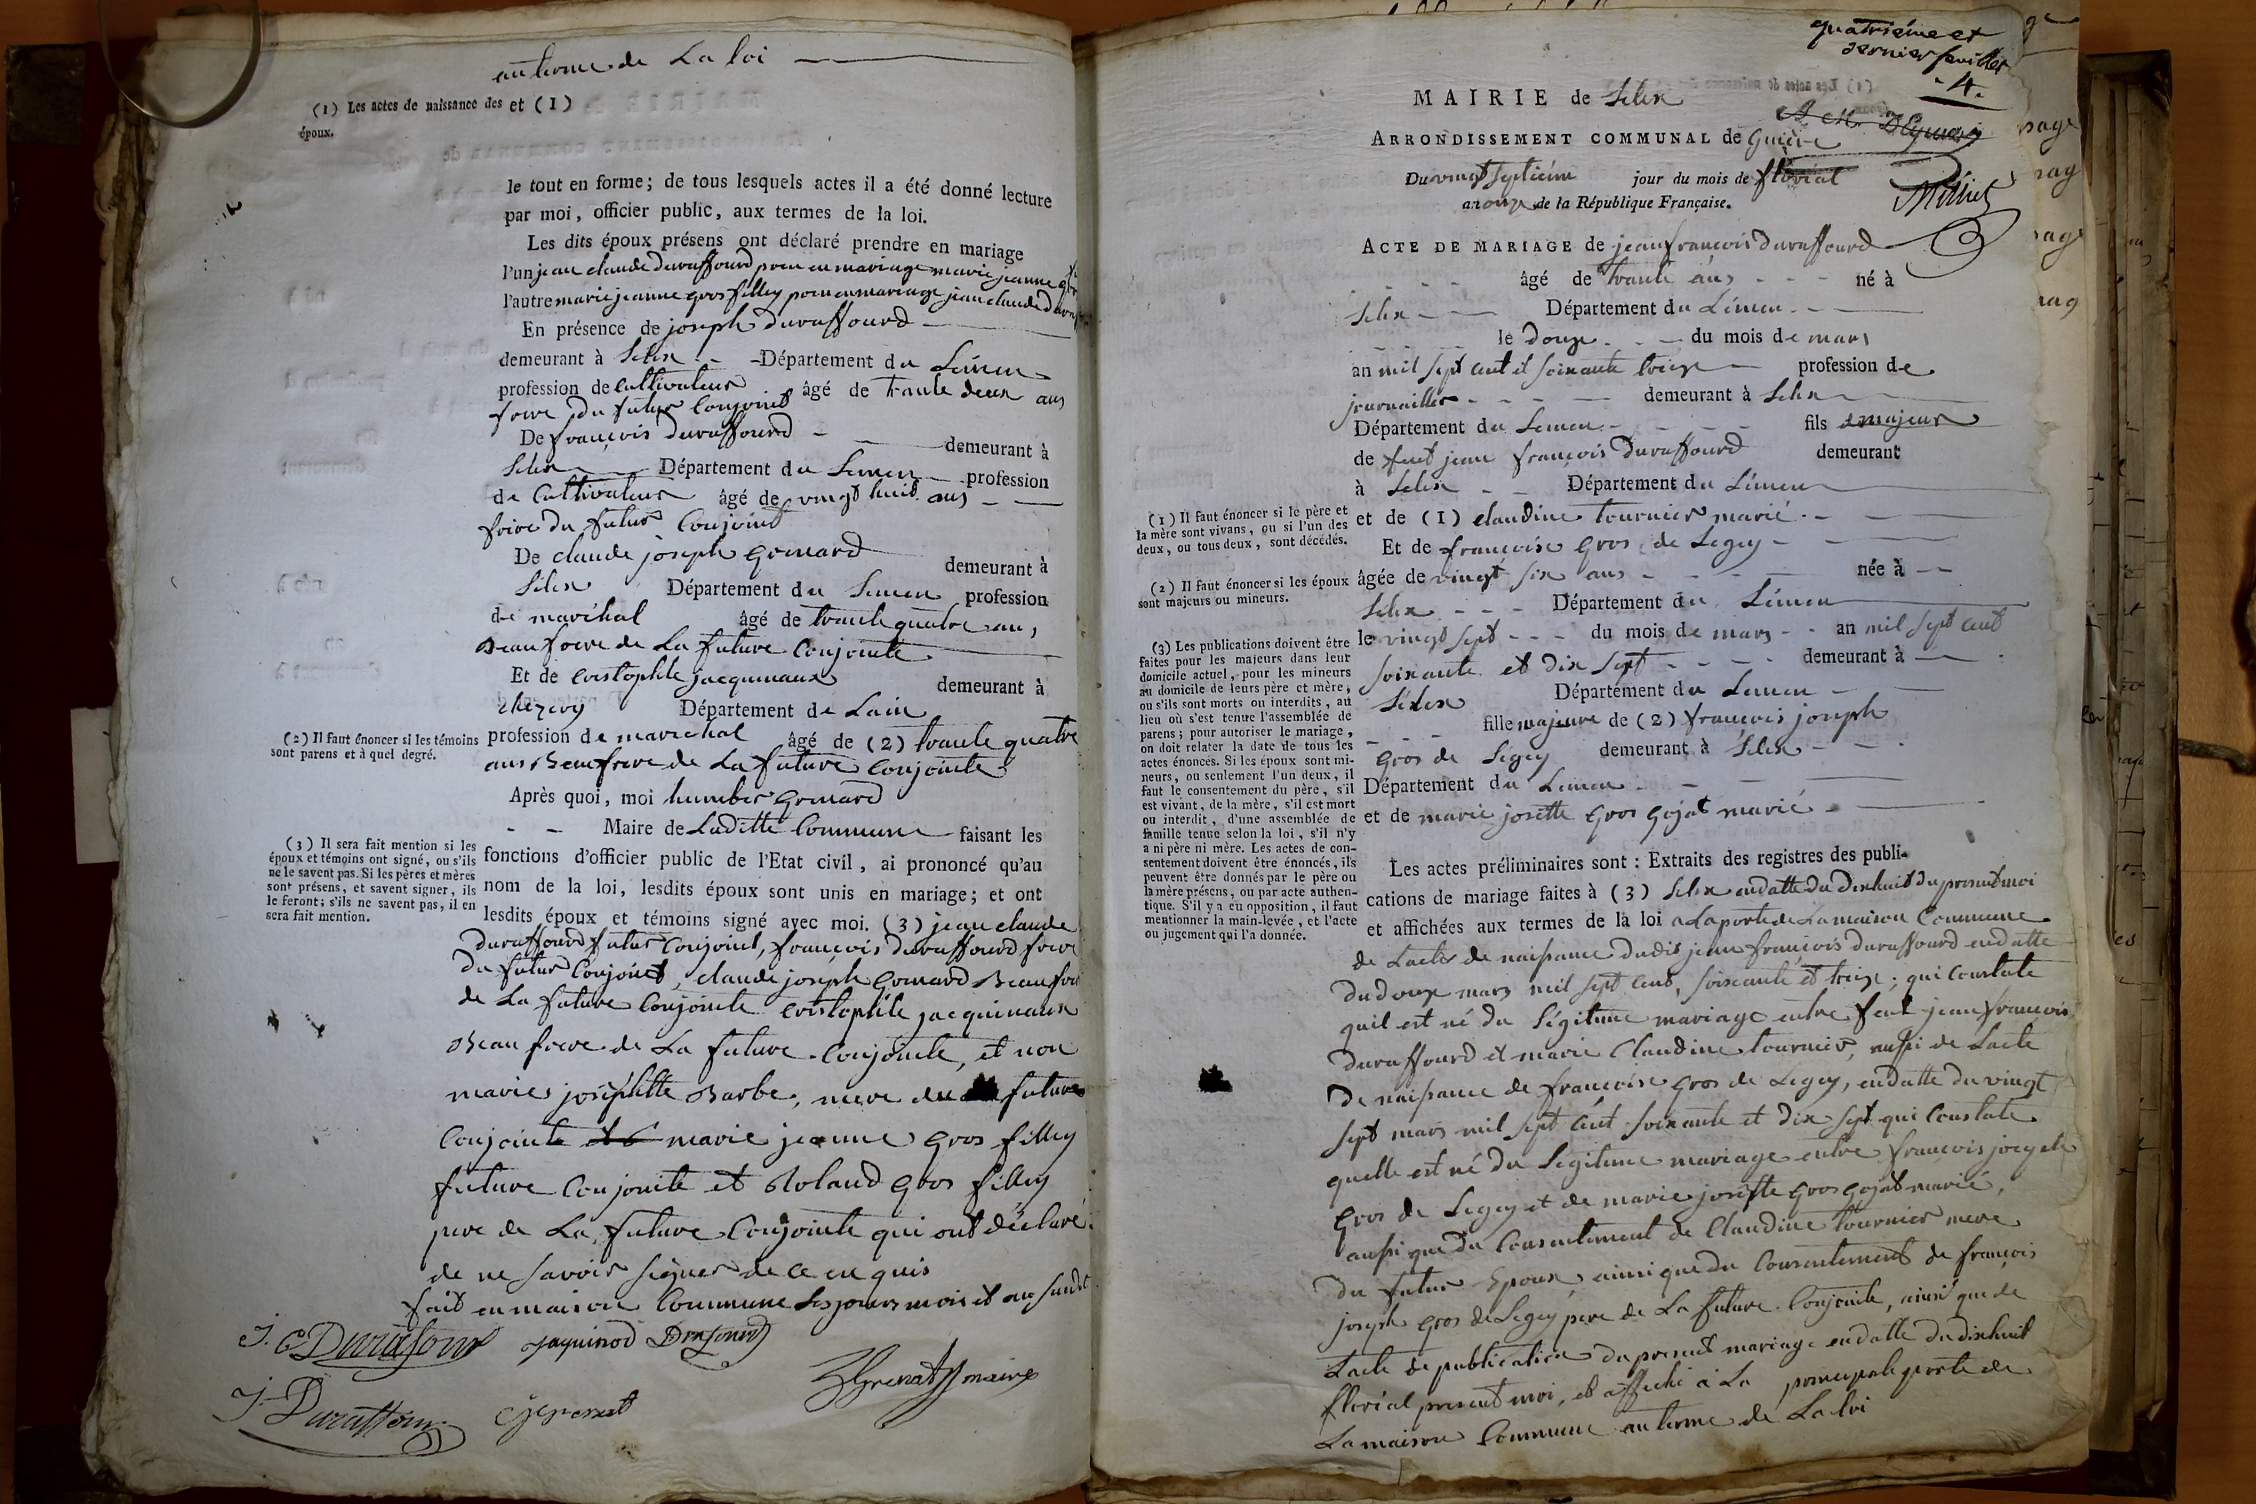 au terme de La loi
(1) Les actes de naissance des
époux.
et (1)
le tout en forme; de tous lesquels actes il a été donné lecture
par moi, officier public, aux termes de la loi.
Les dits époux présens ont déclaré prendre en mariage
l'un jean claude duraffourd pren en mariage marie jeanne
l'autre marie jeanne gros filley pren en mariage jean claude
En présence de joseph duraffourd
demeurant à Selex Département du Léman
profession de Cultivateur âgé de trante deux ans
frere du futur Conjoint
De françois duraffourd demeurant à
Selex Département du Leman profession
de Cultivateur âgé de vingt huit ans
frere du futur Conjoint
De claude joseph Gornard demeurant à
Selex Département du Leman profession
de maréhal âgé de trante quatre ans
Beau frere de La future Conjointe
Et de cristophle jacquinaux demeurant à
chezery Département de Lain
(2) Il faut énoncer si les témoins
sont parens et à quel degré.
profession de marechal âgé de (2) trante quatre
ans Beaufrere de La future Conjointe
Après quoi, moi humber Grenard
Maire de Laditte Commune faisant les
(3) Il sera fait mention si les
époux et témoins ont signé, ou s'ils
ne le savent pas. Si les pères et mères
sont présens, et savent signer, ils
le feront; s'ils ne savent pas, il en
sera fait mention.
fonctions d'officier public de l'Etat civil, ai prononcé qu'au
nom de la loi, lesdits époux sont unis en mariage; et ont
lesdits époux et témoins signé avec moi. (3) jean claude
duraffourd futur Conjoint, françois duraffourd frere
du futur Conjoint, claude joseph Gornard Beau frere
de La future Conjointe cristophle jacquinaux
Beau frere de La future Conjointe, et non
marie josephtte Barbe, mere de future
Conjointe marie jeanne gros filley
future Conjointe et Roland gros filley
pere de La future Conjointe qui ont déclaré
de ne savoir signer de ce enquis
fait en maison Commune Les jours mois et an susdit
J. C Durafour jaquinod Durafourd
J. Duraffour
Grenard maire
quatriéme et
dernier feuillet
4.
MAIRIE de Selex
ARRONDISSEMENT COMMUNAL de
Du vingt septiéme jour du mois de floréal
an onze de la République Française.
ACTE DE MARIAGE de jean françois duraffourd
âgé de trante ans né à
Selex Département du Léman
le douze du mois de mars
an mil sept cent et soixante treize profession de
journaillier demeurant à Selex
Département du Leman fils majeur
de feut jean françois Duraffourd demeurant
à Selex Département du Léman
(1) Il faut énoncer si le père et
la mère sont vivans, ou si l'un des
deux, ou tous deux, sont décédés.
et de (1) claudine tournier marié
Et de françoise gros de Legey
(2) Il faut énoncer si les époux
sont majeurs ou mineurs.
âgée de vingt six ans née à
Selex Département du Léman
le vingt sept du mois de mars an mil sept cent
soixante et dix sept demeurant à
Selex Département du Leman
fille majeure de (2) françois joseph
gros de Legey demeurant à Selex
Département du Leman
et de marie josette gros gojat marié
(3) Les publications doivent être
faites pour les majeurs dans leur
domicile actuel, pour les mineurs
au domicile de leurs père et mère,
ou s'ils sont morts ou interdits, au
lieu où s'est tenue l'assemblée de
parens; pour autoriser le mariage,
on doit relater la date de tous les
actes énoncés. Si les époux sont mi-
neurs, ou seulement l'un deux, il
faut le consentement du père, s'il
est vivant, de la mère, s'il est mort
ou interdit, d'une assemblée de
famille tenue selon la loi, s'il n'y
a ni père ni mère. Les actes de con-
sentement doivent être énoncés, ils
peuvent être donnés par le père ou
la mère présens, ou par acte authen-
tique. S'il y a eu opposition, il faut
mentionner la main-levée, et l'acte
ou jugement qui l'a donnée.
Les actes préliminaires sont : Extraits des registres des publi-
cations de mariage faites à (3) Selex endatte du dixhuit du present moi
et affichées aux termes de la loi a La porte de La maison Commune
de Lacte de naissance dudit jean françois duraffourd endatte
du douze mars mil sept cent, soixante et treize; qui Constate
quil est né du Légitime mariage entre feut jean françois
duraffourd et marie Claudine tournier, aussi de Lacte
de naissance de françoise gros de Legey, endatte du vingt
sept mars mil sept cent soixante et dix sept qui Constate
quelle est né du Légitime mariage entre françois joseph
gros de Legey et de marie josette gros gojat marié,
aussi que du Consentement de Claudine tournier mere
du futur Epoux, ainsi que du Consentement de françois
joseph gros de Legey pere de La future Conjointe, ainsi que de
Lacte de publication du present mariage endatte du dixhuit
floréal present moi, et affiché à La principale porte de
La maison Commune au terme de La loi